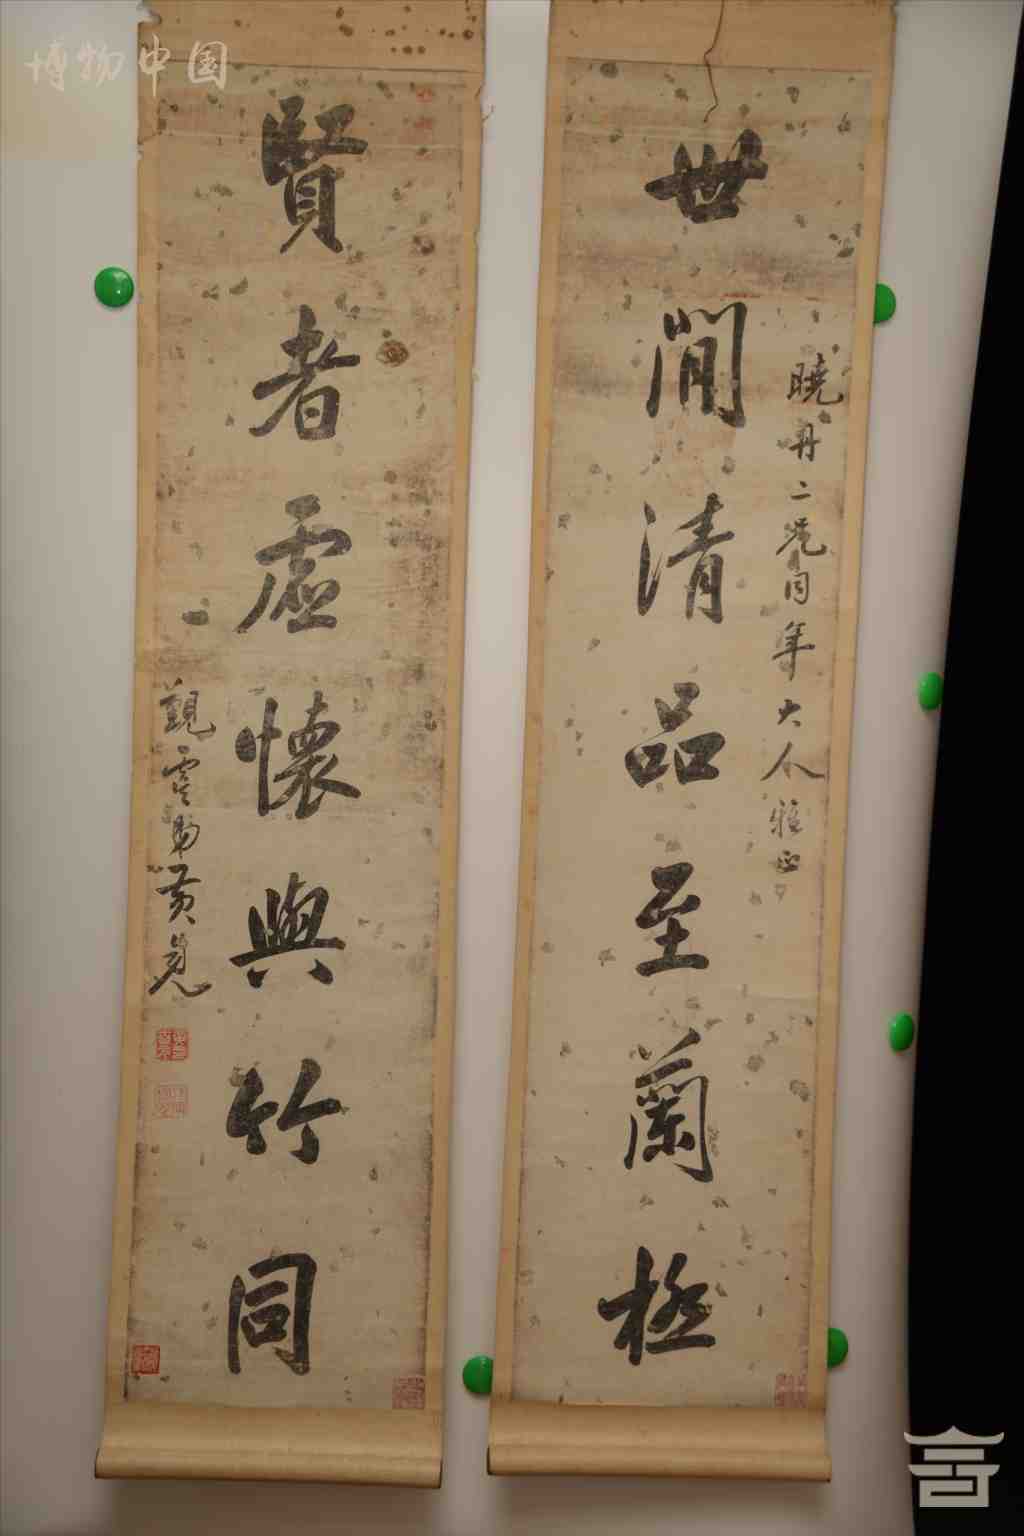 博物中国
世閒清品至蘭極
曉丹二兄同年大人雅正
賢者虛懷與竹同
覲虞弟黃